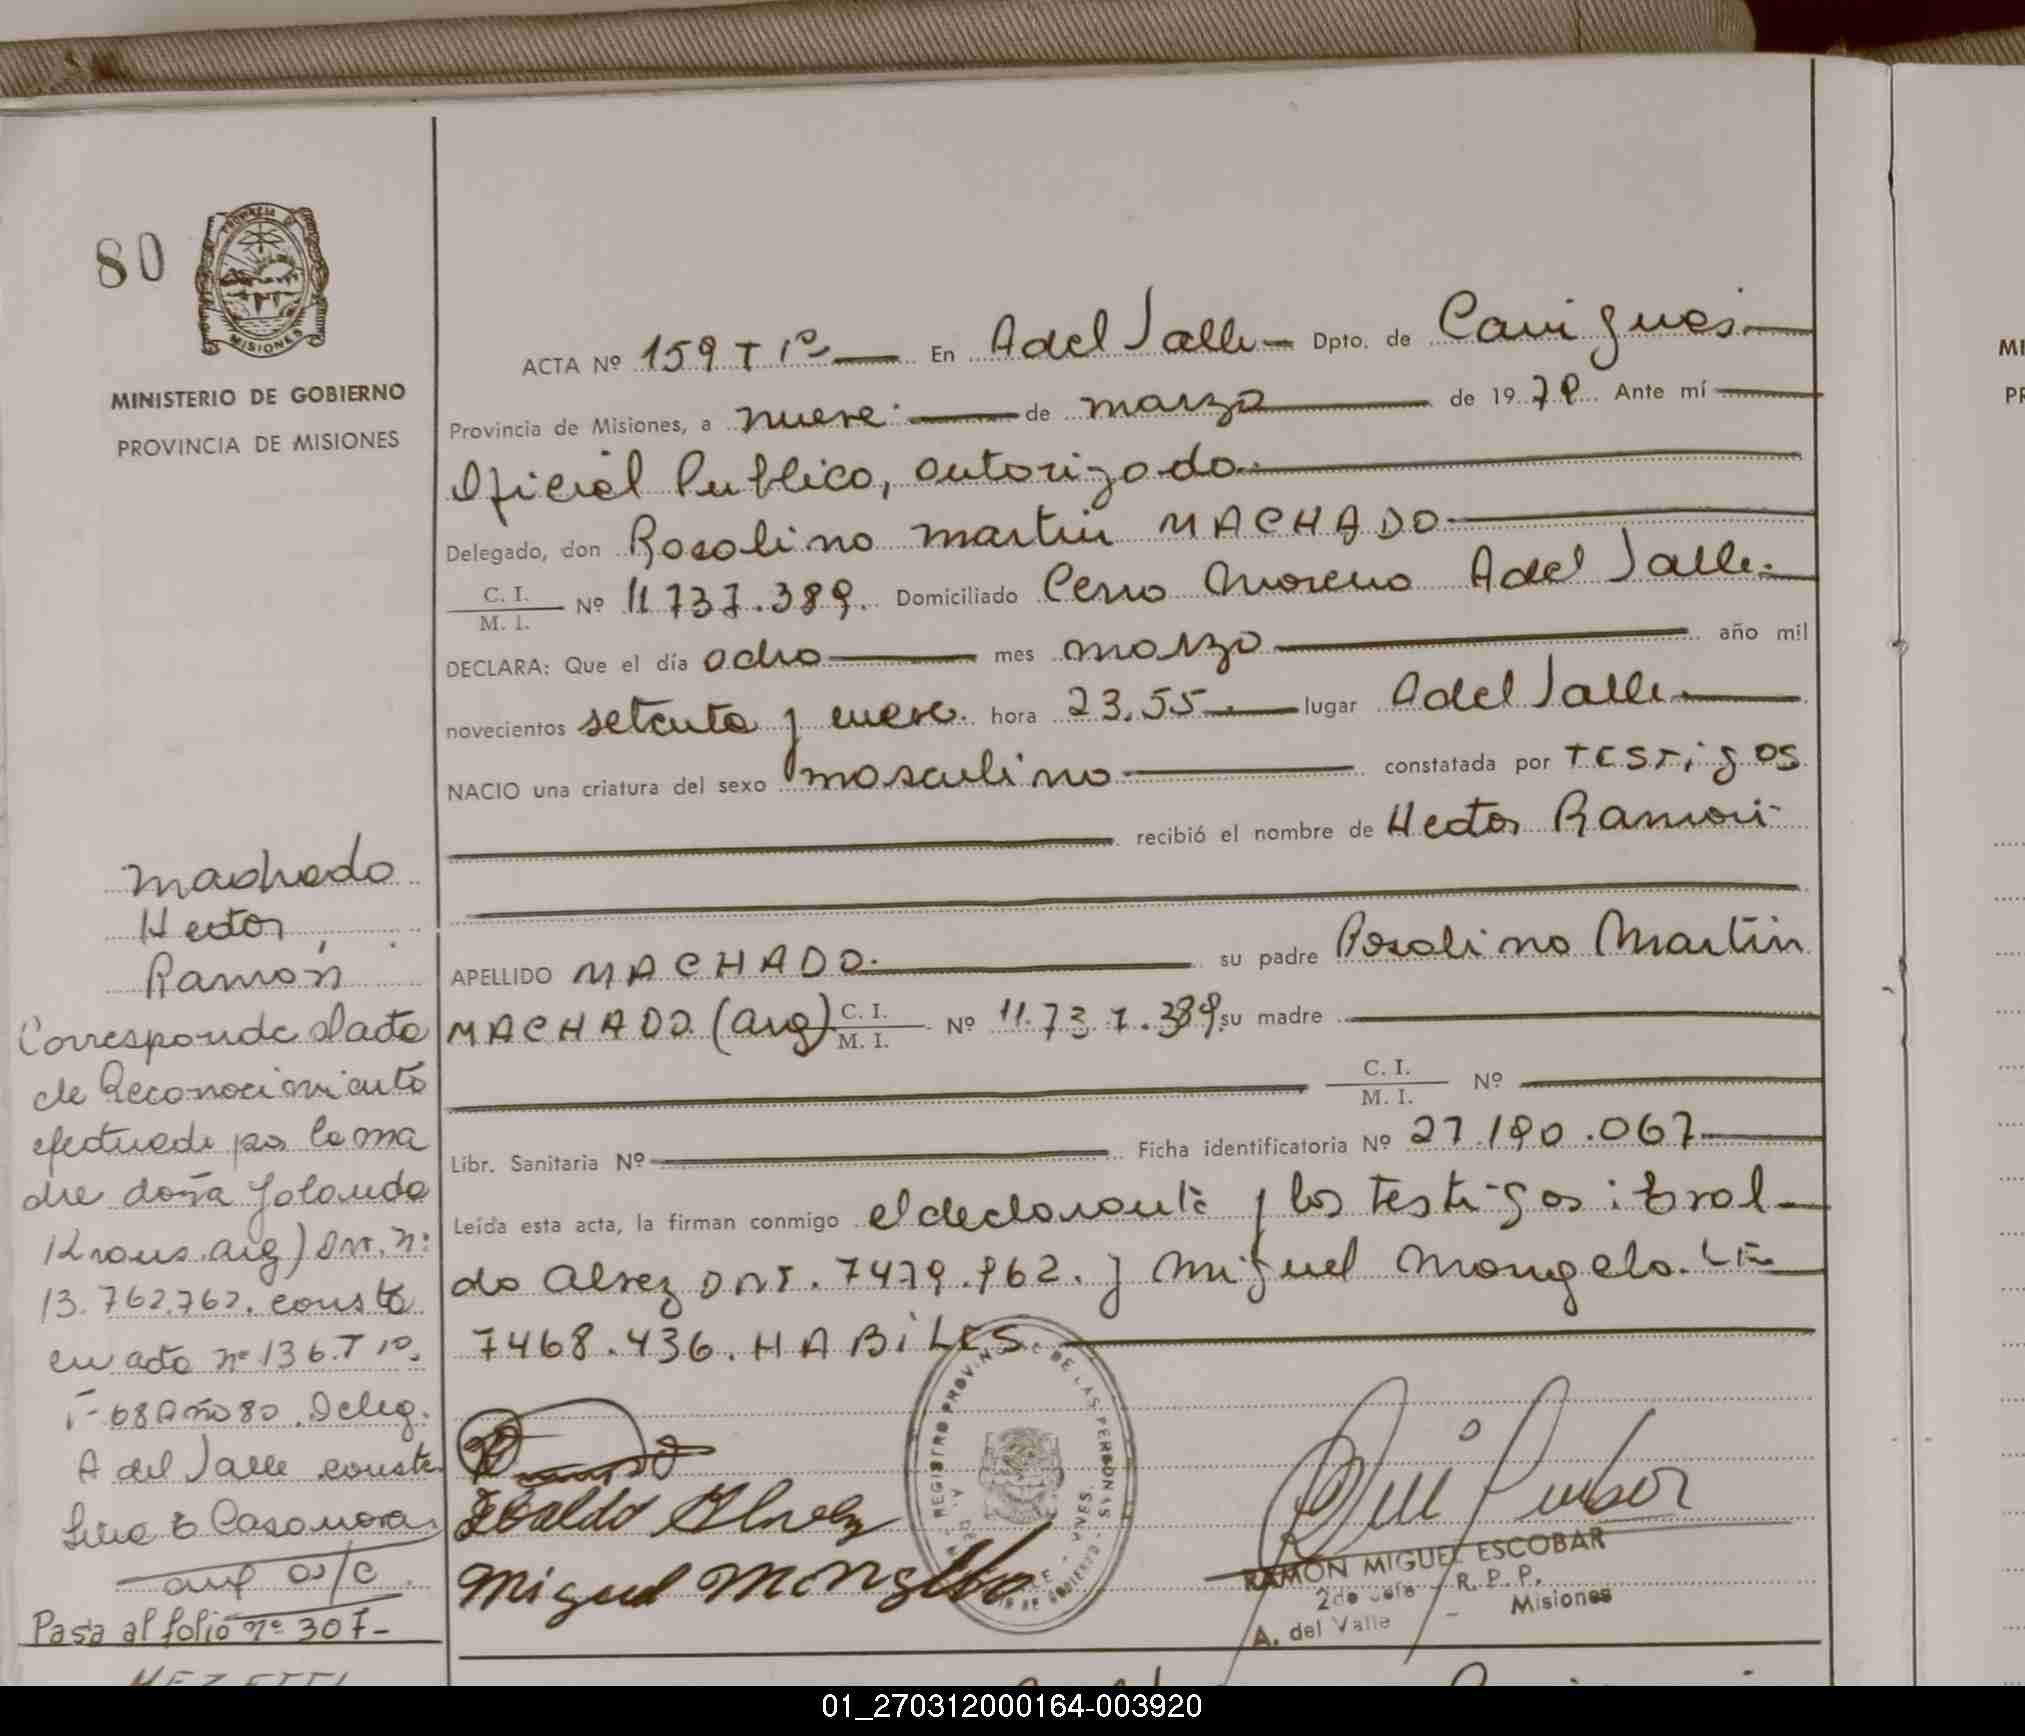 80
PROVINCIA DE
MISIONES
MINISTERIO DE GOBIERNO
PROVINCIA DE MISIONES
ACTA Nº 159 T 1º En A del Valle Dpto. de Cainguas
Provincia de Misiones, a nueve de marzo de 1979. Ante mí
Oficial Publico, autorizado
Delegado, don Rosolino Martin MACHADO
C. I.
M. I. Nº 11.737.389. Domiciliado Cerro Moreno A del Valle
DECLARA: Que el día ocho mes marzo año mil
novecientos setenta y nueve. hora 23.55 lugar A del Valle
NACIO una criatura del sexo masculino constatada por TESTigos
recibió el nombre de Hector Ramon
APELLIDO MACHADO su padre Rosolino Martin
MACHADO (arg) C. I.
M. I. Nº 11.737.389 su madre
C. I.
M. I. Nº
Libr. Sanitaria Nº Ficha identificatoria Nº 27.190.067
Leída esta acta, la firman conmigo el declarante y los testigos:
do Alvez DNI. 7479.962. y Miguel Mongelo. LE
7468.436. HABiLES.
Machado
Hector,
Ramón
Corresponde al acta
de Reconocimiento
efectuado por la ma
dre doña Yolanda
Kraus arg) DNI. n:
13.762.762. consta
en acta nº 136 T 1º.
Fº 68 Año 80. Deleg.
A del Valle conste
Casanova
Pasa al folio nº 307-
Alvez
Miguel Mongelo
REGISTRO PROVINCIAL DE LAS PERSONAS
RAMON MIGUEL ESCOBAR
2do Jefe - R. P. P.
A. del Valle - Misiones
01_270312000164-003920